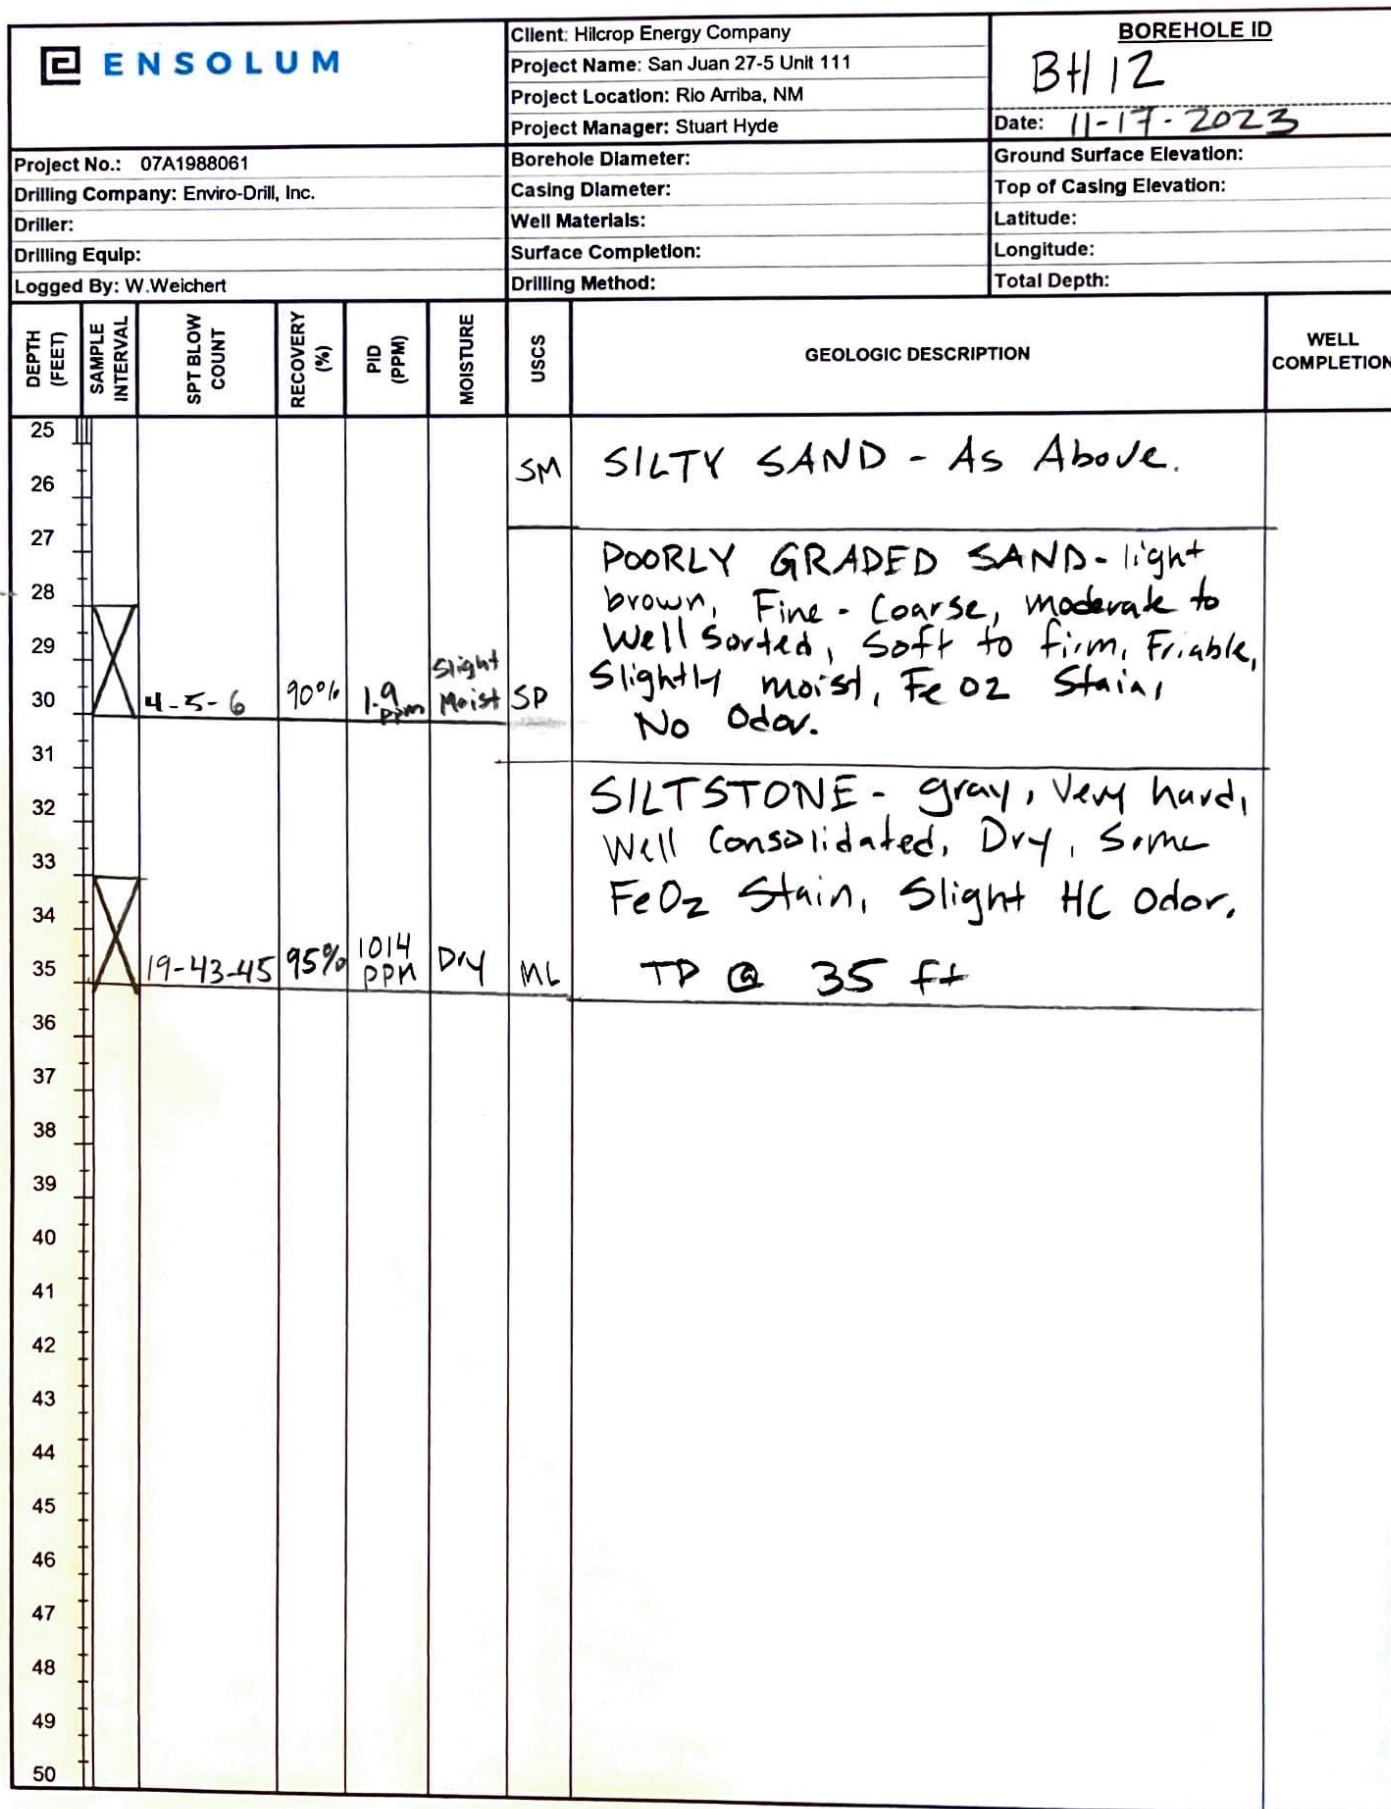 ENSOLUM
Client: Hilcrop Energy Company
Project Name: San Juan 27-5 Unit 111
Project Location: Rio Arriba, NM
Project Manager: Stuart Hyde
BOREHOLE ID
BH12
Date: 11-17-2023
Project No.: 07A1988061
Drilling Company: Enviro-Drill, Inc.
Driller:
Drilling Equip:
Logged By: W.Weichert
Borehole Diameter:
Casing Diameter:
Well Materials:
Surface Completion:
Drilling Method:
Ground Surface Elevation:
Top of Casing Elevation:
Latitude:
Longitude:
Total Depth:
DEPTH (FEET)
SAMPLE INTERVAL
SPT BLOW COUNT
RECOVERY (%)
PID (PPM)
MOISTURE
USCS
GEOLOGIC DESCRIPTION
WELL COMPLETION
25
SM SILTY SAND - As Above.
26
27
POORLY GRADED SAND - light
28
brown, Fine - Coarse, moderate to
29
Well Sorted, Soft to firm, Friable,
30 4-5-6 90% 1.9 ppm Slight Moist SP Slightly moist, Fe O2 Stain,
No Odor.
31
SILTSTONE - gray, Very hard,
32
Well Consolidated, Dry, Some
33
FeO2 Stain, Slight HC Odor.
34
35 19-43-45 95% 1014 PPM Dry ML TD @ 35 ft
36
37
38
39
40
41
42
43
44
45
46
47
48
49
50